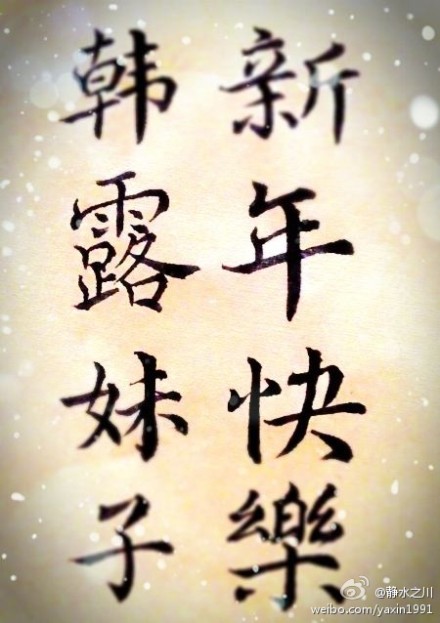 新年快樂
韩露妹子
@静水之川
weibo.com/yaxin1991